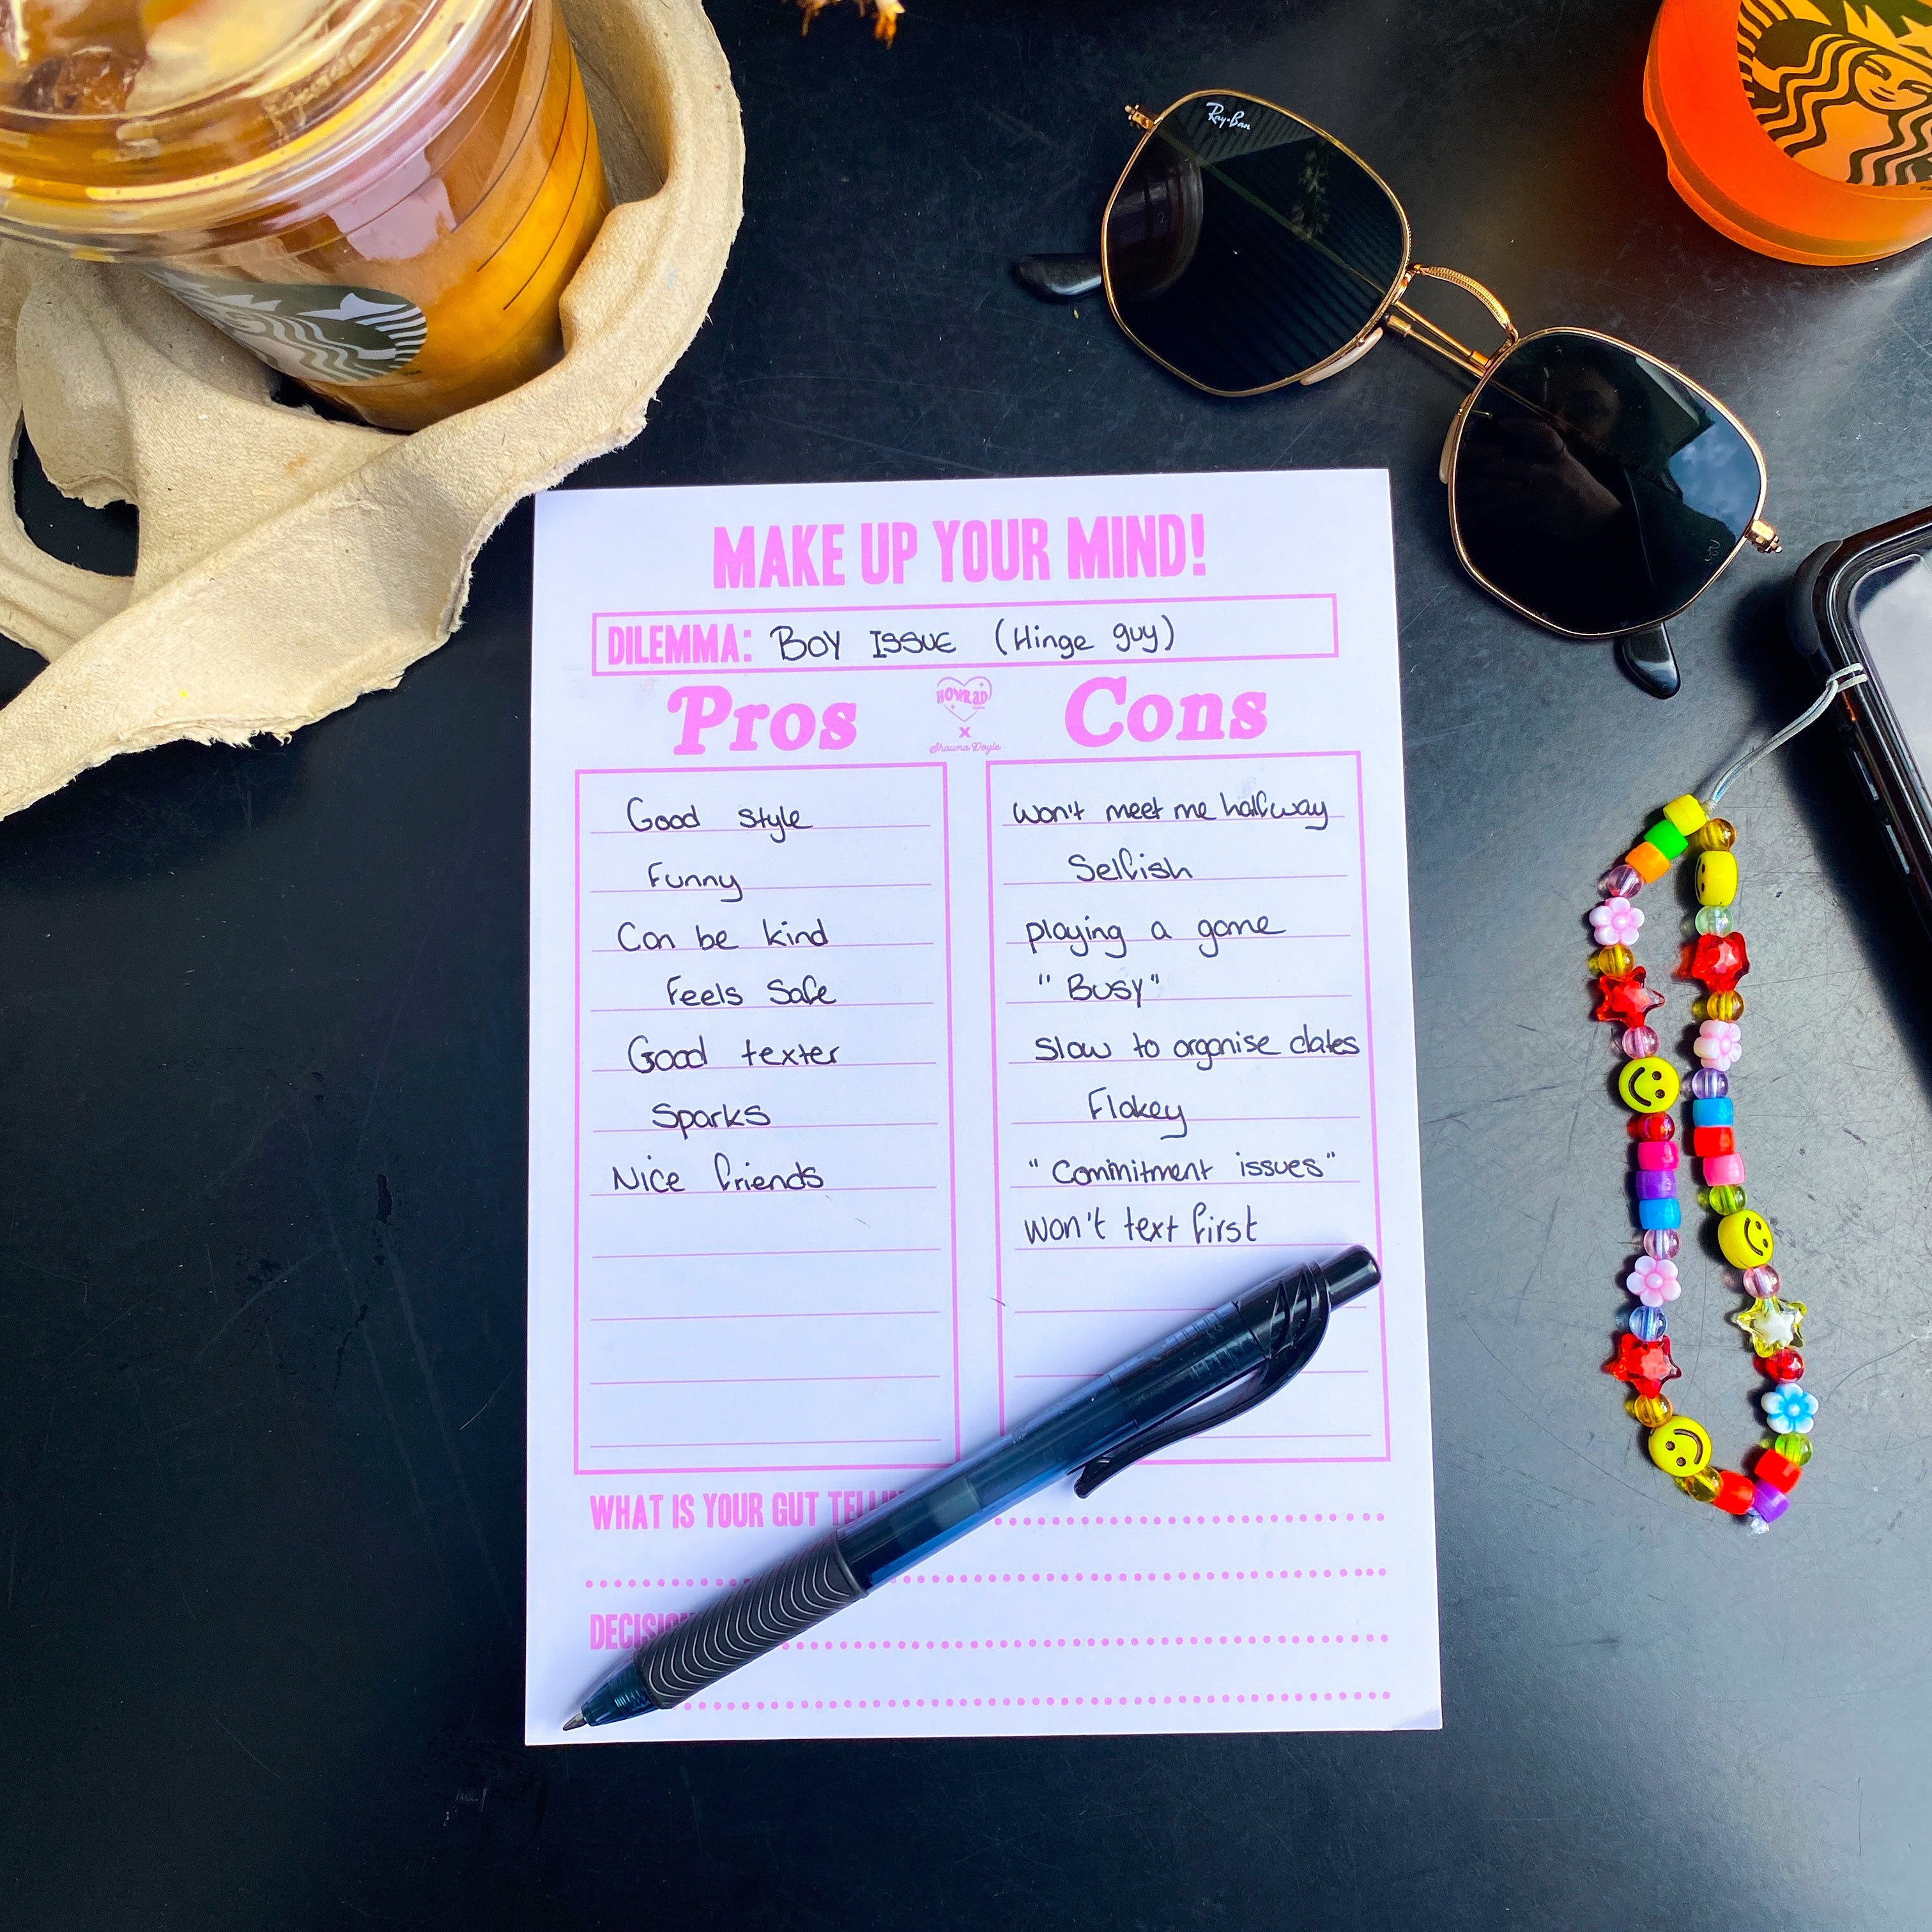 Ray-Ban
MAKE UP YOUR MIND!
DILEMMA: BOY ISSUE (Hinge guy)
Pros
HOWRAD
x
Shauna Doyle
Cons
Good style
Funny
Can be kind
Feels safe
Good texter
Sparks
Nice friends
Won't meet me halfway
Selfish
playing a game
"Busy"
Slow to organise dates
Flakey
"Commitment issues"
won't text first
WHAT IS YOUR GUT